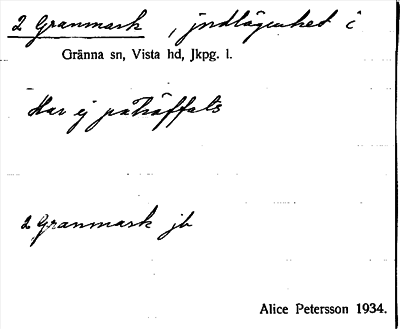 2 Granmark, jordlägenhet i
Gränna sn, Vista hd, Jkpg. l.
Har ej påträffats
2 Granmark jb
Alice Petersson 1934.